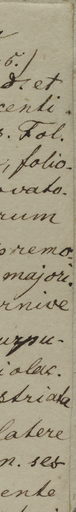 6.)
d. et
centi.
s. Fol.
, folio-
ovato-
rum
oremo-
majori.
rnive
urpu-
iolac.
striata
latere
n. ses
ente